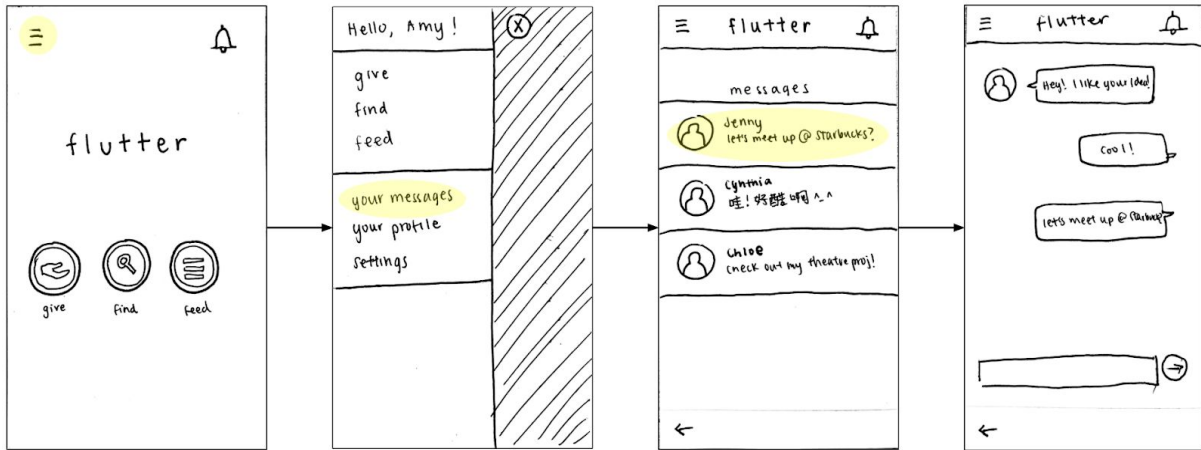 flutter
give
find
feed
Hello, Amy!
X
give
find
feed
your messages
your profile
settings
flutter
messages
Jenny
let's meet up @ Starbucks?
Cynthia
哇!好酷啊 ^_^
Chloe
Check out my theatre proj!
flutter
Hey! I like your idea!
Cool!
let's meet up @ Starbucks